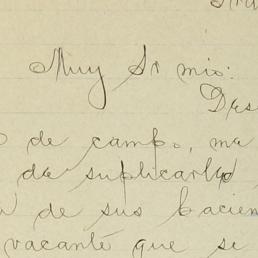 Muy Sr mio:
Des
de campo, ma
da suplicarle
de sus hacien
vacante que se